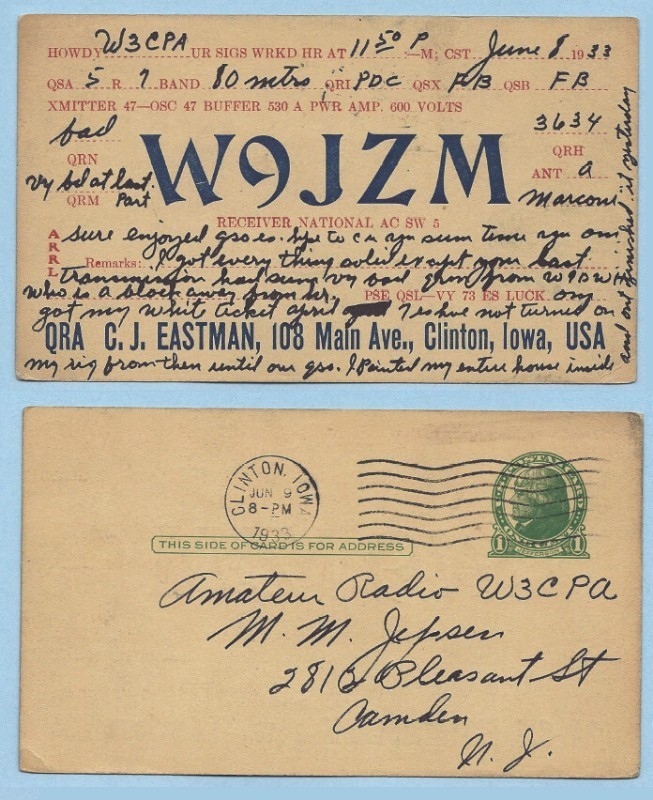 HOWDY W3CPA UR SIGS WRKD HR AT 11 50 P —M; CST June 8 1933
QSA 5 R 7 BAND 80 mtrs QRI PDC QSX FB QSB FB
XMITTER 47—OSC 47 BUFFER 530 A PWR AMP. 600 VOLTS
bad
QRN
vy bd at last
QRM Part
W9JZM
3634
QRH
ANT a
Marconi
RECEIVER NATIONAL AC SW 5
ARRL
sure enjoyed qso es hpe to c u agn sum time
Remarks: I got everything solid except your last
transmission had sum vy bad qrm from
who is a block away from hr.
PSE QSL—VY 73 ES LUCK
got my white ticket april 7 es hve not turned on
QRA C. J. EASTMAN, 108 Main Ave., Clinton, Iowa, USA
my rig from then until our qso. I Painted my entire house inside
and out finished it yesterday
CLINTON, IOWA
JUN 9
8-PM
1933
THIS SIDE OF CARD IS FOR ADDRESS
JEFFERSON
1 1
Amateur Radio W3CPA
M. M. Jepsen
2813 Pleasant St
Camden
N. J.